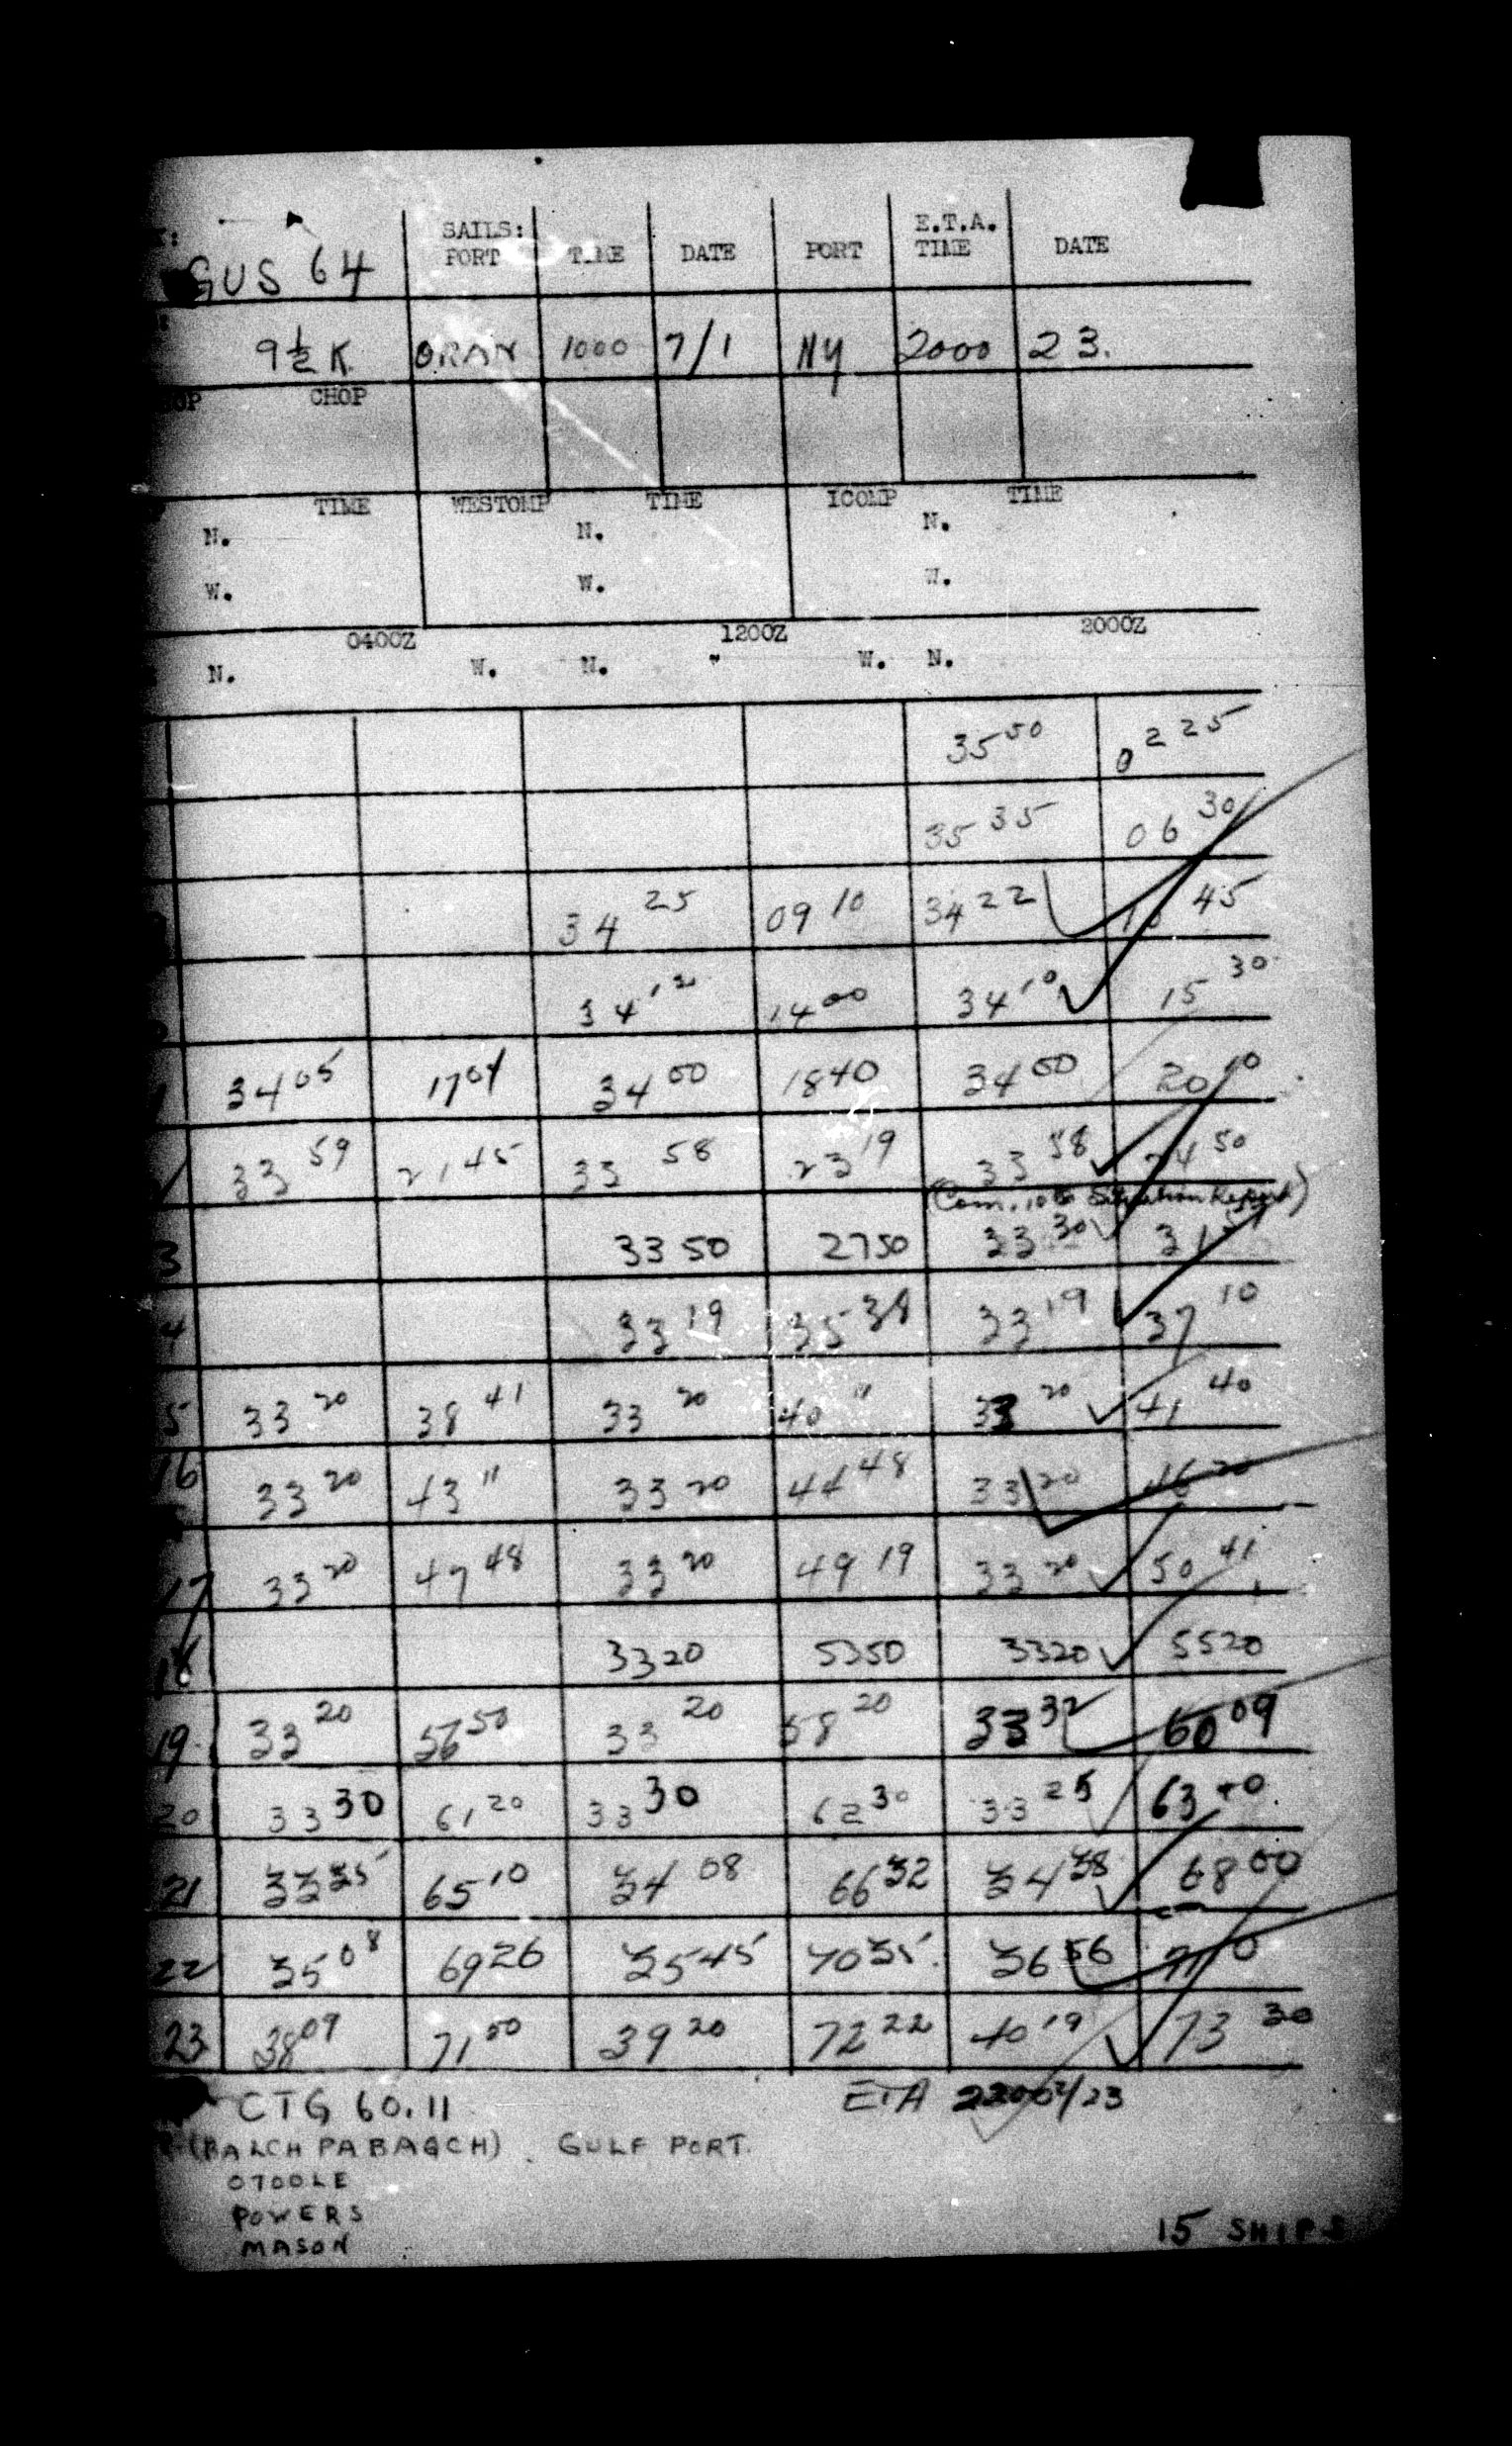 SAILS: E.T.A.
GUS 64 PORT TIME DATE PORT TIME DATE
9½ K. ORAN 1000 7/1 NY 2000 23.
CHOP
TIME WESTOMP TIME ICOMP TIME
N. N. N.
W. W. W.
0400Z 1200Z 2000Z
N. W. N. W. N.
35 50 0225
35 35 06 30
34 25 09 10 34 22 45
34 12 14 00 34 10 15 30
34 05 17 04 34 00 1840 34 00 20 10
33 59 21 45 33 58 23 19 33 58 24 50
(Com. 10th Situation Report)
3 33 50 2750 33 30 31
4 33 19 35 38 33 19 37 10
5 33 20 38 41 33 20 40 11 33 20 41 40
16 33 20 43 11 33 20 44 48 33 20 46 20
17 33 20 47 48 33 20 49 19 33 20 50 41
18 3320 5350 3320 5520
19 33 20 56 50 33 20 58 20 33 32 60 09
20 33 30 61 20 33 30 62 30 33 25 63 40
21 33 35 65 10 34 08 66 32 34 38 68 00
22 35 08 69 26 35 45 70 35 36 56
23 38 09 71 00 39 20 72 22 40 19 73 30
CTG 60.11 ETA 2200Z/23
(BALCH PABAGCH) GULF PORT.
OTOOLE
POWERS
MASON 15 SHIPS